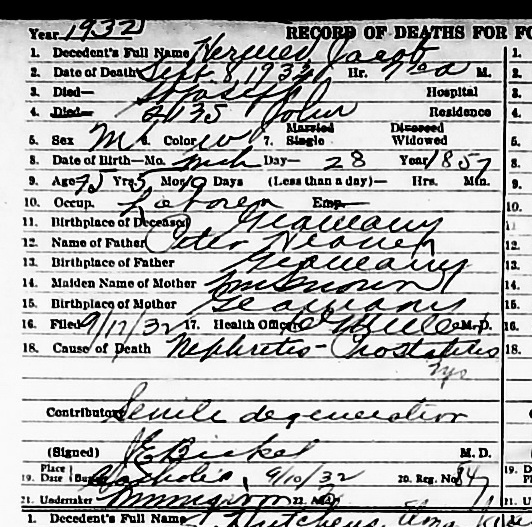 Year 1932 RECORD OF DEATHS FOR FO
1. Decedent's Full Name Hermes Jacob
2. Date of Death Sept. 8, 1932 Hr. M.
3. Died— St Joseph Hospital
4. Died— 2135 John Residence
5. Sex M 6. Color W 7. Married Single Divorced Widowed
8. Date of Birth—Mo. Mch Day— 28 Year 1857
9. Age 75 Yrs 5 Mos 9 Days (Less than a day)— Hrs. Min.
10. Occup. Laborer Emp—
11. Birthplace of Deceased Germany
12. Name of Father Peter
13. Birthplace of Father Germany
14. Maiden Name of Mother Unknown
15. Birthplace of Mother Germany
16. Filed 9/12/32 17. Health Officer M.D.
18. Cause of Death Nephritis - Prostatitis
Contributory Senile degeneration
(Signed) J E Bickel M. D.
19. Place Date Burial Catholic, 9/10/32 20. Reg. No 847
21. Undertaker 22. Add
1. Decedent's Full Name